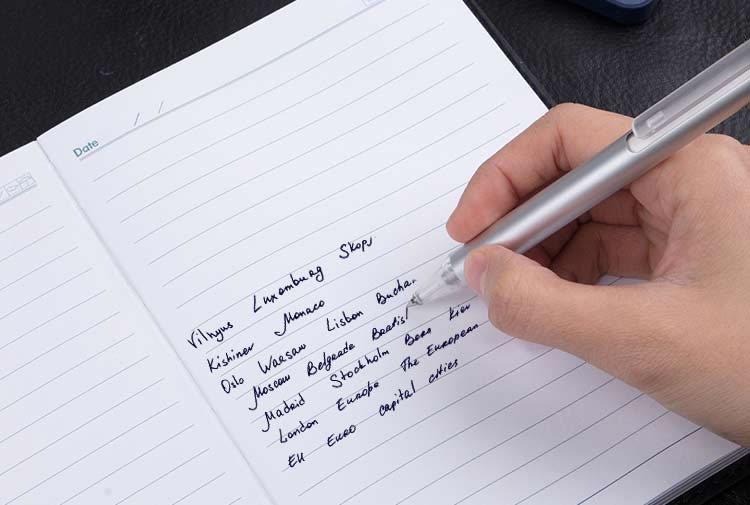 Date / /
Vilnyus Luxemburg Skopj
Kishinev Monaco
Oslo Warsaw Lisbon Bucha
Moscow Belgrade Bratisl
Madrid Stockholm Bern Kiev
London Europe The European
EU Euro capital cities